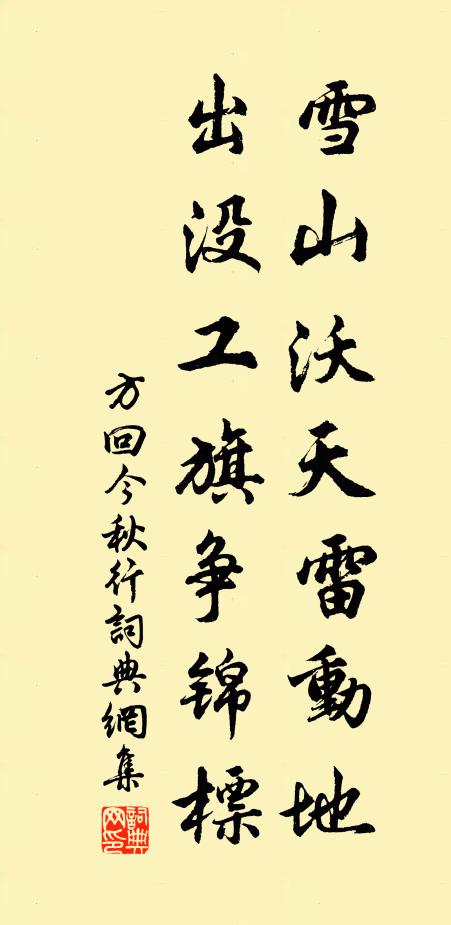 雪山沃天雷動地
出没工旗争锦標
方回今秋行詞典網集
詞典
网印